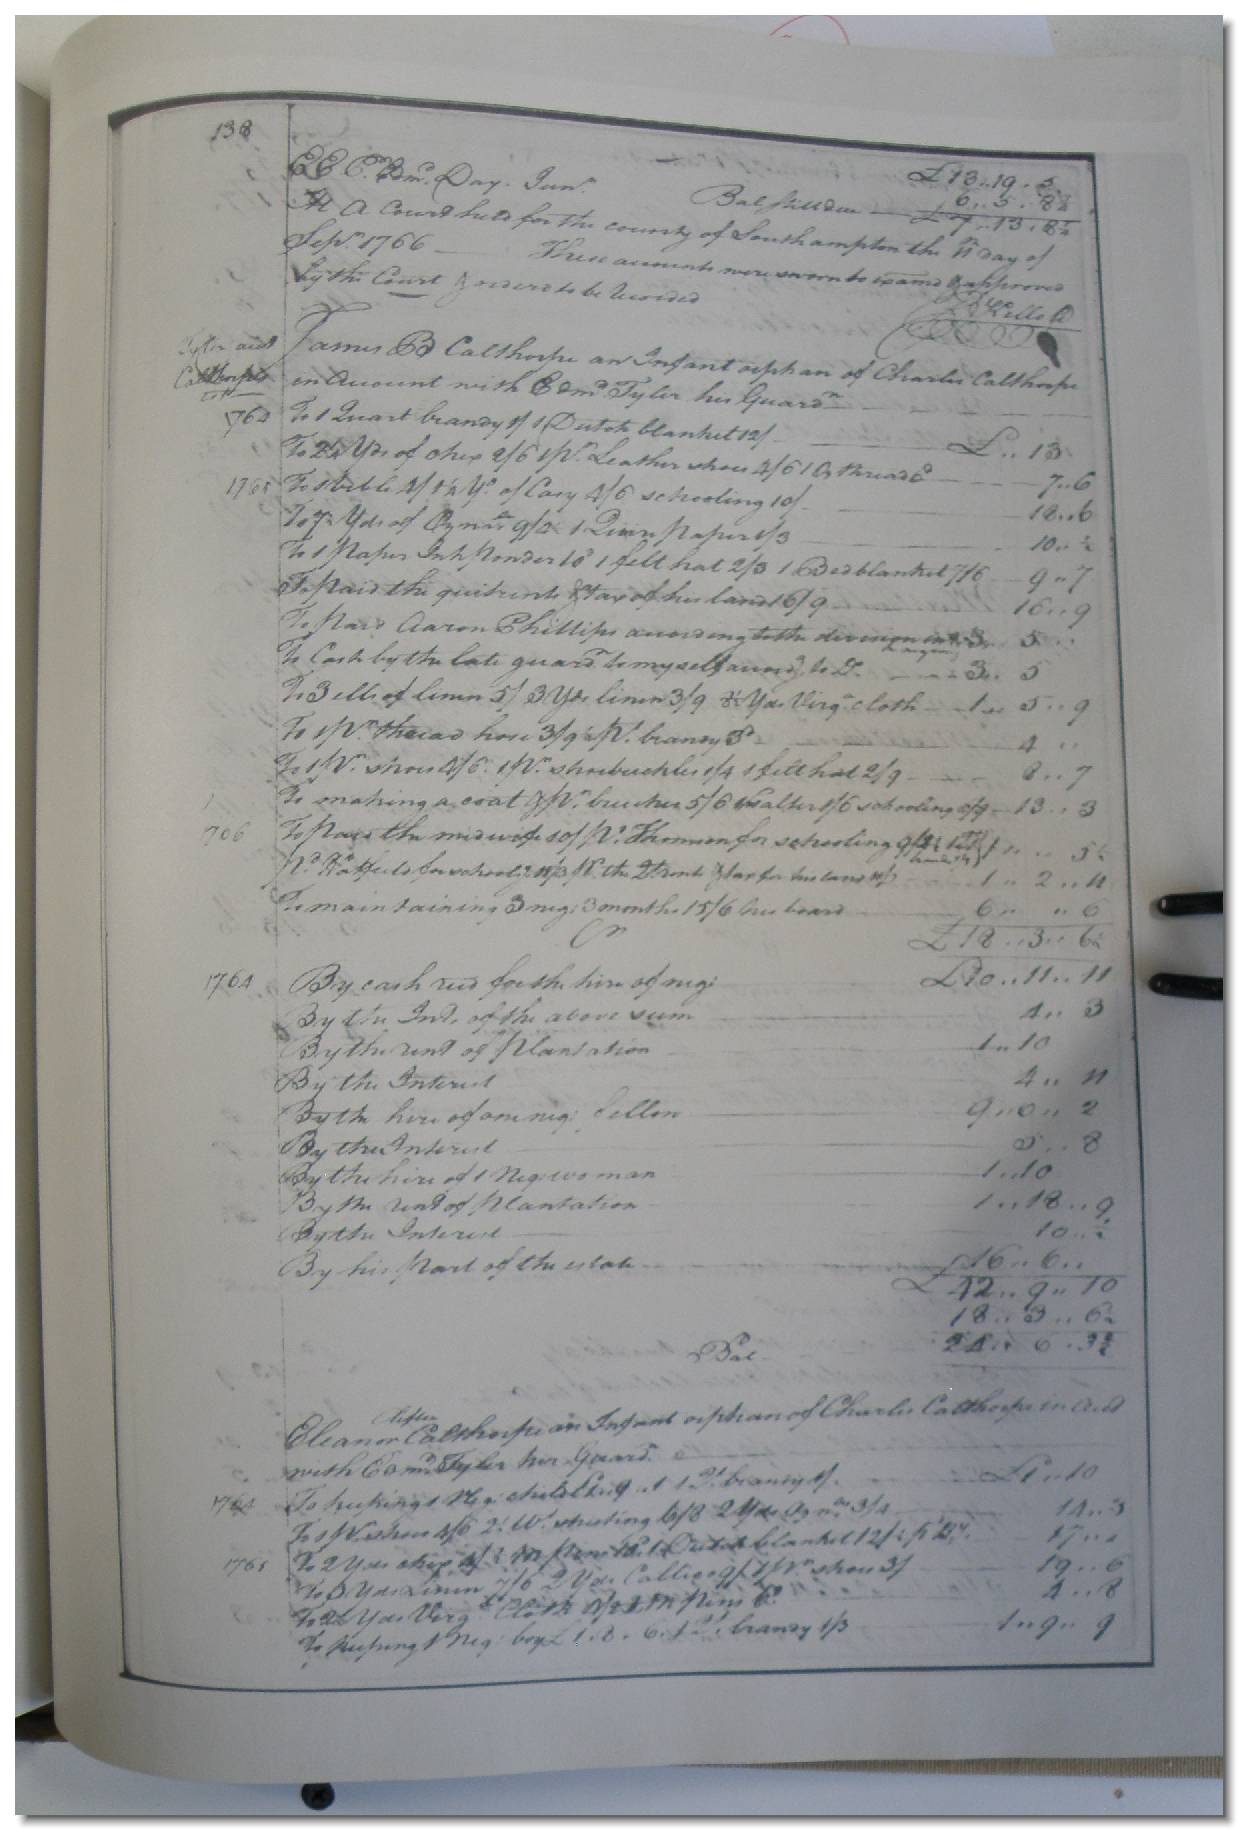 138
EE P. Edmd. Day. Junr. £13..19..5
Bal still due 6..5..8½
£7..13..8½
At A Court held for the county of Southampton the 11th day of
Sepr. 1766 These accounts were sworn to examd & approved
by the Court & orderd to be Recorded
Tyler acct
Calthorpes
James Bd Calthorpe an Infant orphan of Charles Calthorpe
in Account with Edmd. Tyler his Guardn
1764 To 1 Quart brandy 1/ 1 Dutch blanket 12/ £..13
To 2¼ Yds of chex 2/6 1 Pr. Leather shoes 4/6 1 Oz thread 6d 7..6
1765 To 1 bible 4/ 1½ Yd. of Casy 4/6 schooling 10/ 18..6
1 Quire Paper 1/3 10..½
To 1 Paper Ink Powder 10d 1 felt hat 2/3 1 Bed blanket 7/6 9..7
To Paid the quitrents & tax of his land 16/9 16..9
To Paid Aaron Phillips according to the division 3.. 5..
To Cash by the late guardn to myself accordg. to Do. 3.. 5
To 3 ells of linen 5/ 3 Yds linen 3/9 Yds Virga cloth 1.. 5..9
To 1 Pr. thread hose 3/9 Pt. brandy 3d 4 ..
To 1 Pr. shoes 4/6. 1 Pr. shoebuckles 1/4 1 felt hat 2/9 8..7
To making a coat & Pr. breeches 5/6 1 halter 1/6 schooling 13..3
1766 To Paid the midwife 10/ Pd. Thomson for schooling 1.. .. 5½
Pd. for schoolg. Pd. the Qtrents & tax for his land 1.. 2..11
To maintaining 3 neg: 3 months 15/6 his board 6.. ..6
Cr £18..3..6½
1764 By cash recd for the hire of neg: £10..11..11
By the Int. of the above sum 4..3
By the rent of Plantation 1..10
By the Interest 4..11
By the hire of one neg: fellow 9..0..2
By the Interest 5..8
By the hire of 1 Neg: woman 1..10
By the rent of Plantation 1..18..9
By the Interest 10..½
By his Part of the estate 16..6..
£42..9..10
18..3..6½
Bal 24..6..3½
Eleanor Clifton Calthorpe an Infant orphan of Charles Calthorpe in acct
with Edmd. Tyler her Guardn
1764 To keeping 1 Neg: child £1..9.. 1 Qt. brandy 1/. £1..10
To 1 Pr. shoes 4/6 sheeting 6/8 2 Yds 3/4 14..3
1765 To 2 Yds chex 4/ Pins Dutch blanket 12/ 17..
To 3 Yds Linen 7/6 2 Yds Callico 9/ 1 Pr. shoes 3/ 19..6
Yds Virga Cloth Pins 6d. 4..8
To keeping 1 Neg: boy £1..8..6. 1 Qt. brandy 1/3 1..9..9